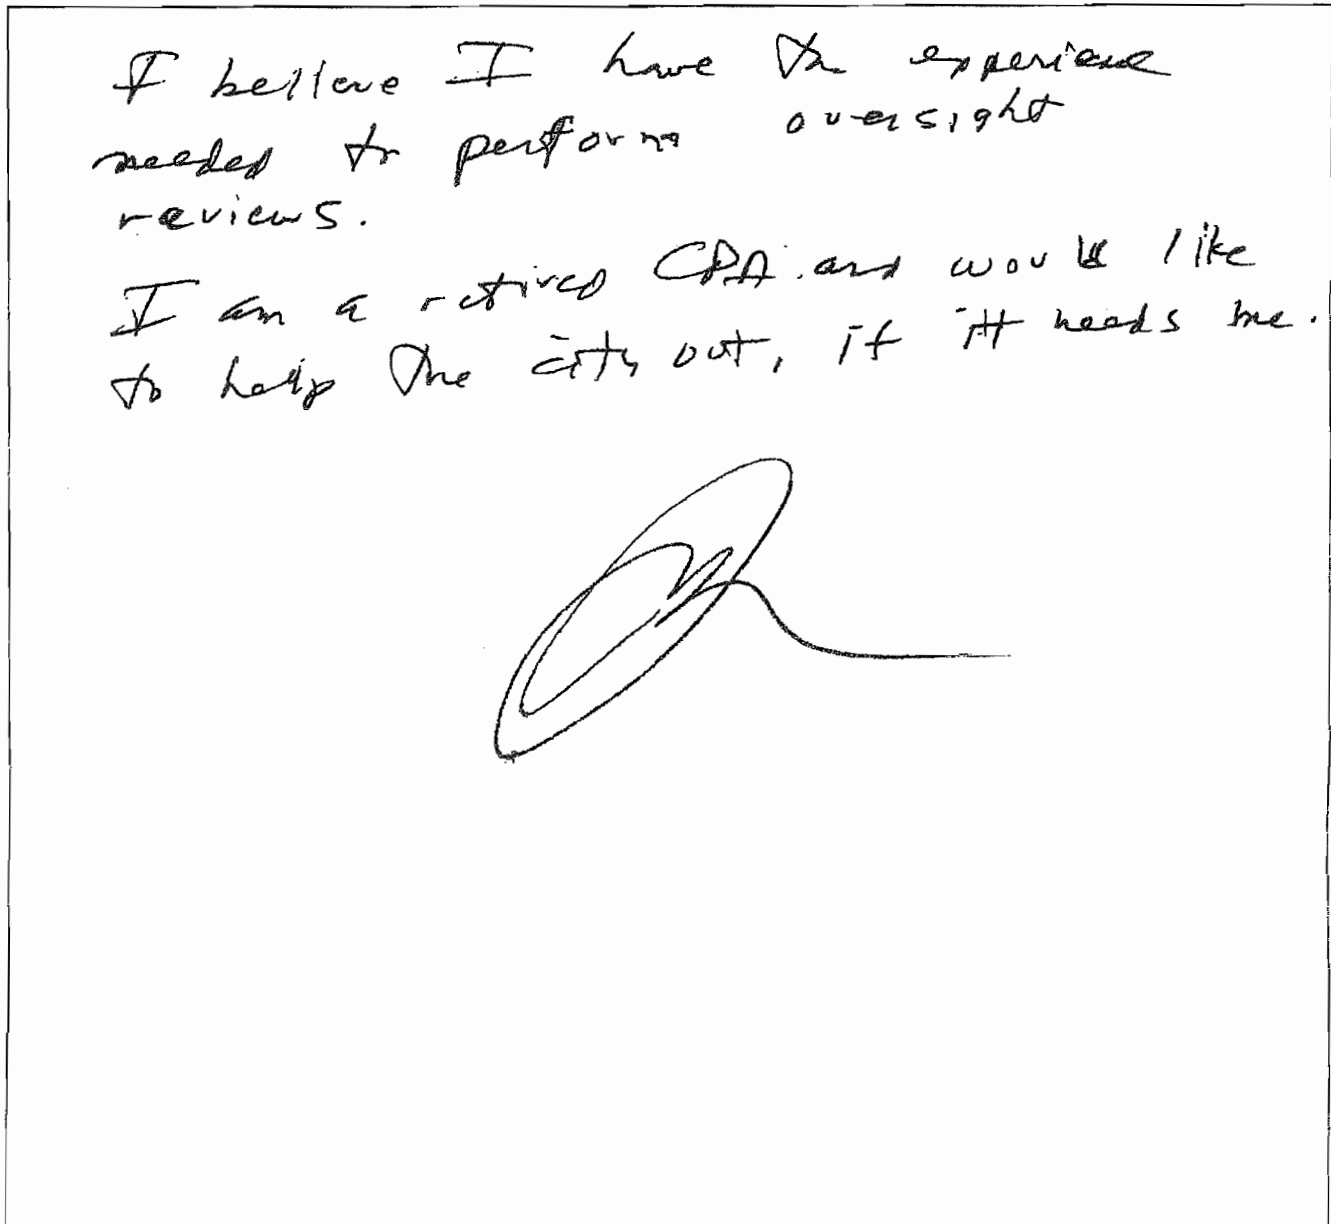 I believe I have the experience
needed to perform oversight
reviews.
I am a retired CPA and would like
to help the city out, if it needs me.